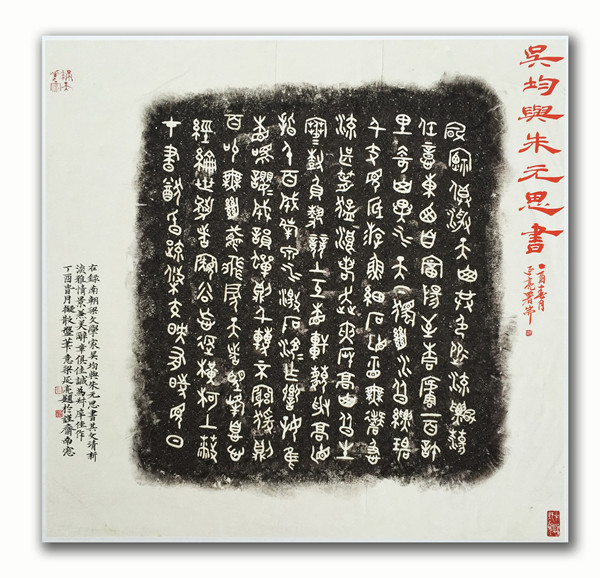 吳均與朱元思書
丁酉春月
延亮署耑
風煙俱淨天山共色從流飄蕩
任意東西自富陽至桐廬一百許
里奇山異水天下獨絕水皆縹碧
千丈見底游魚細石直視無礙急
湍甚箭猛浪若奔夾岸高山皆生
寒樹負勢競上互相軒邈爭高直
指千百成峰泉水激石泠泠作響好鳥
相鳴嚶嚶成韻蟬則千轉不窮猿則
百叫無絕鳶飛戾天者望峰息心
經綸世務者窺谷忘反橫柯上蔽
在晝猶昏疏條交映有時見日
右錄南朝梁文學家吳均與朱元思書其文清新
淡雅情景兼美辭章俱佳誠為駢庫佳作
丁酉春月擬散盤筆意梁延亮題於謹齋南窗